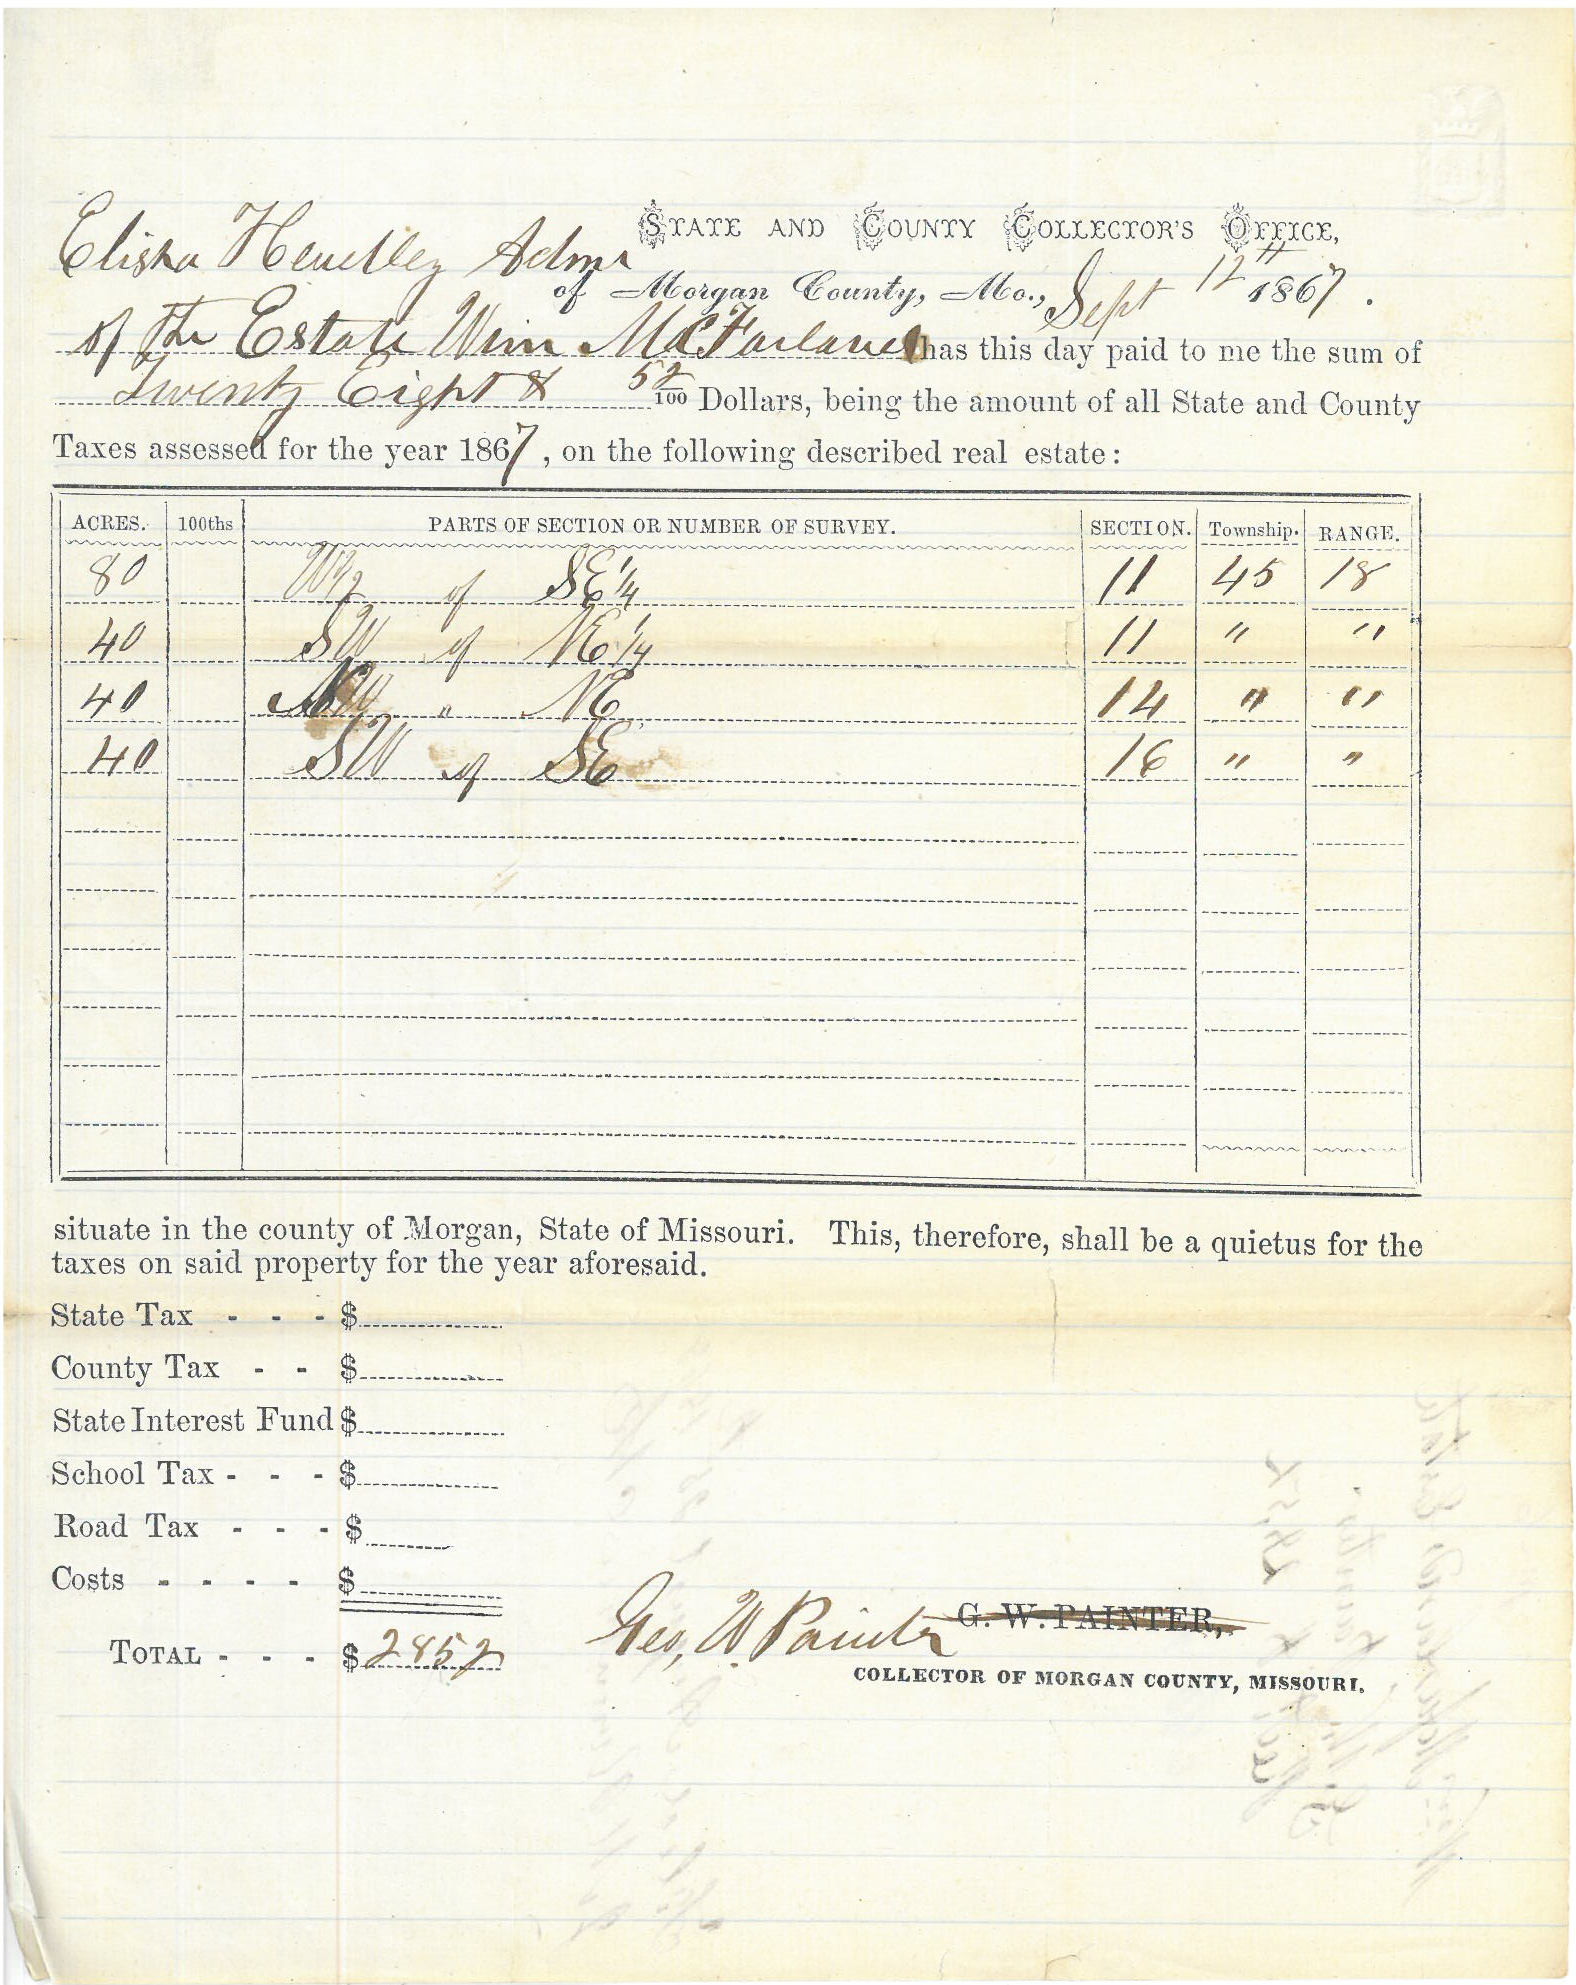 STATE AND COUNTY COLLECTOR'S OFFICE,
Elisha Hendley Admr
of Morgan County, Mo., Sept 12th 1867.
of the Estate Wim McFarland has this day paid to me the sum of
Twenty Eight & 52/100 Dollars, being the amount of all State and County
Taxes assessed for the year 1867, on the following described real estate:
ACRES. 100ths PARTS OF SECTION OR NUMBER OF SURVEY. SECTION. Township. RANGE.
80 W½ of SE ¼ 11 45 18
40 SW of NE ¼ 11 " "
40 NW " NE 14 " "
40 SW of SE 16 " "
situate in the county of Morgan, State of Missouri. This, therefore, shall be a quietus for the
taxes on said property for the year aforesaid.
State Tax - - - $
County Tax - - $
State Interest Fund $
School Tax - - - $
Road Tax - - - $
Costs - - - - $
Geo, W. Painter G. W. PAINTER,
TOTAL - - - $ 28 52
COLLECTOR OF MORGAN COUNTY, MISSOURI.